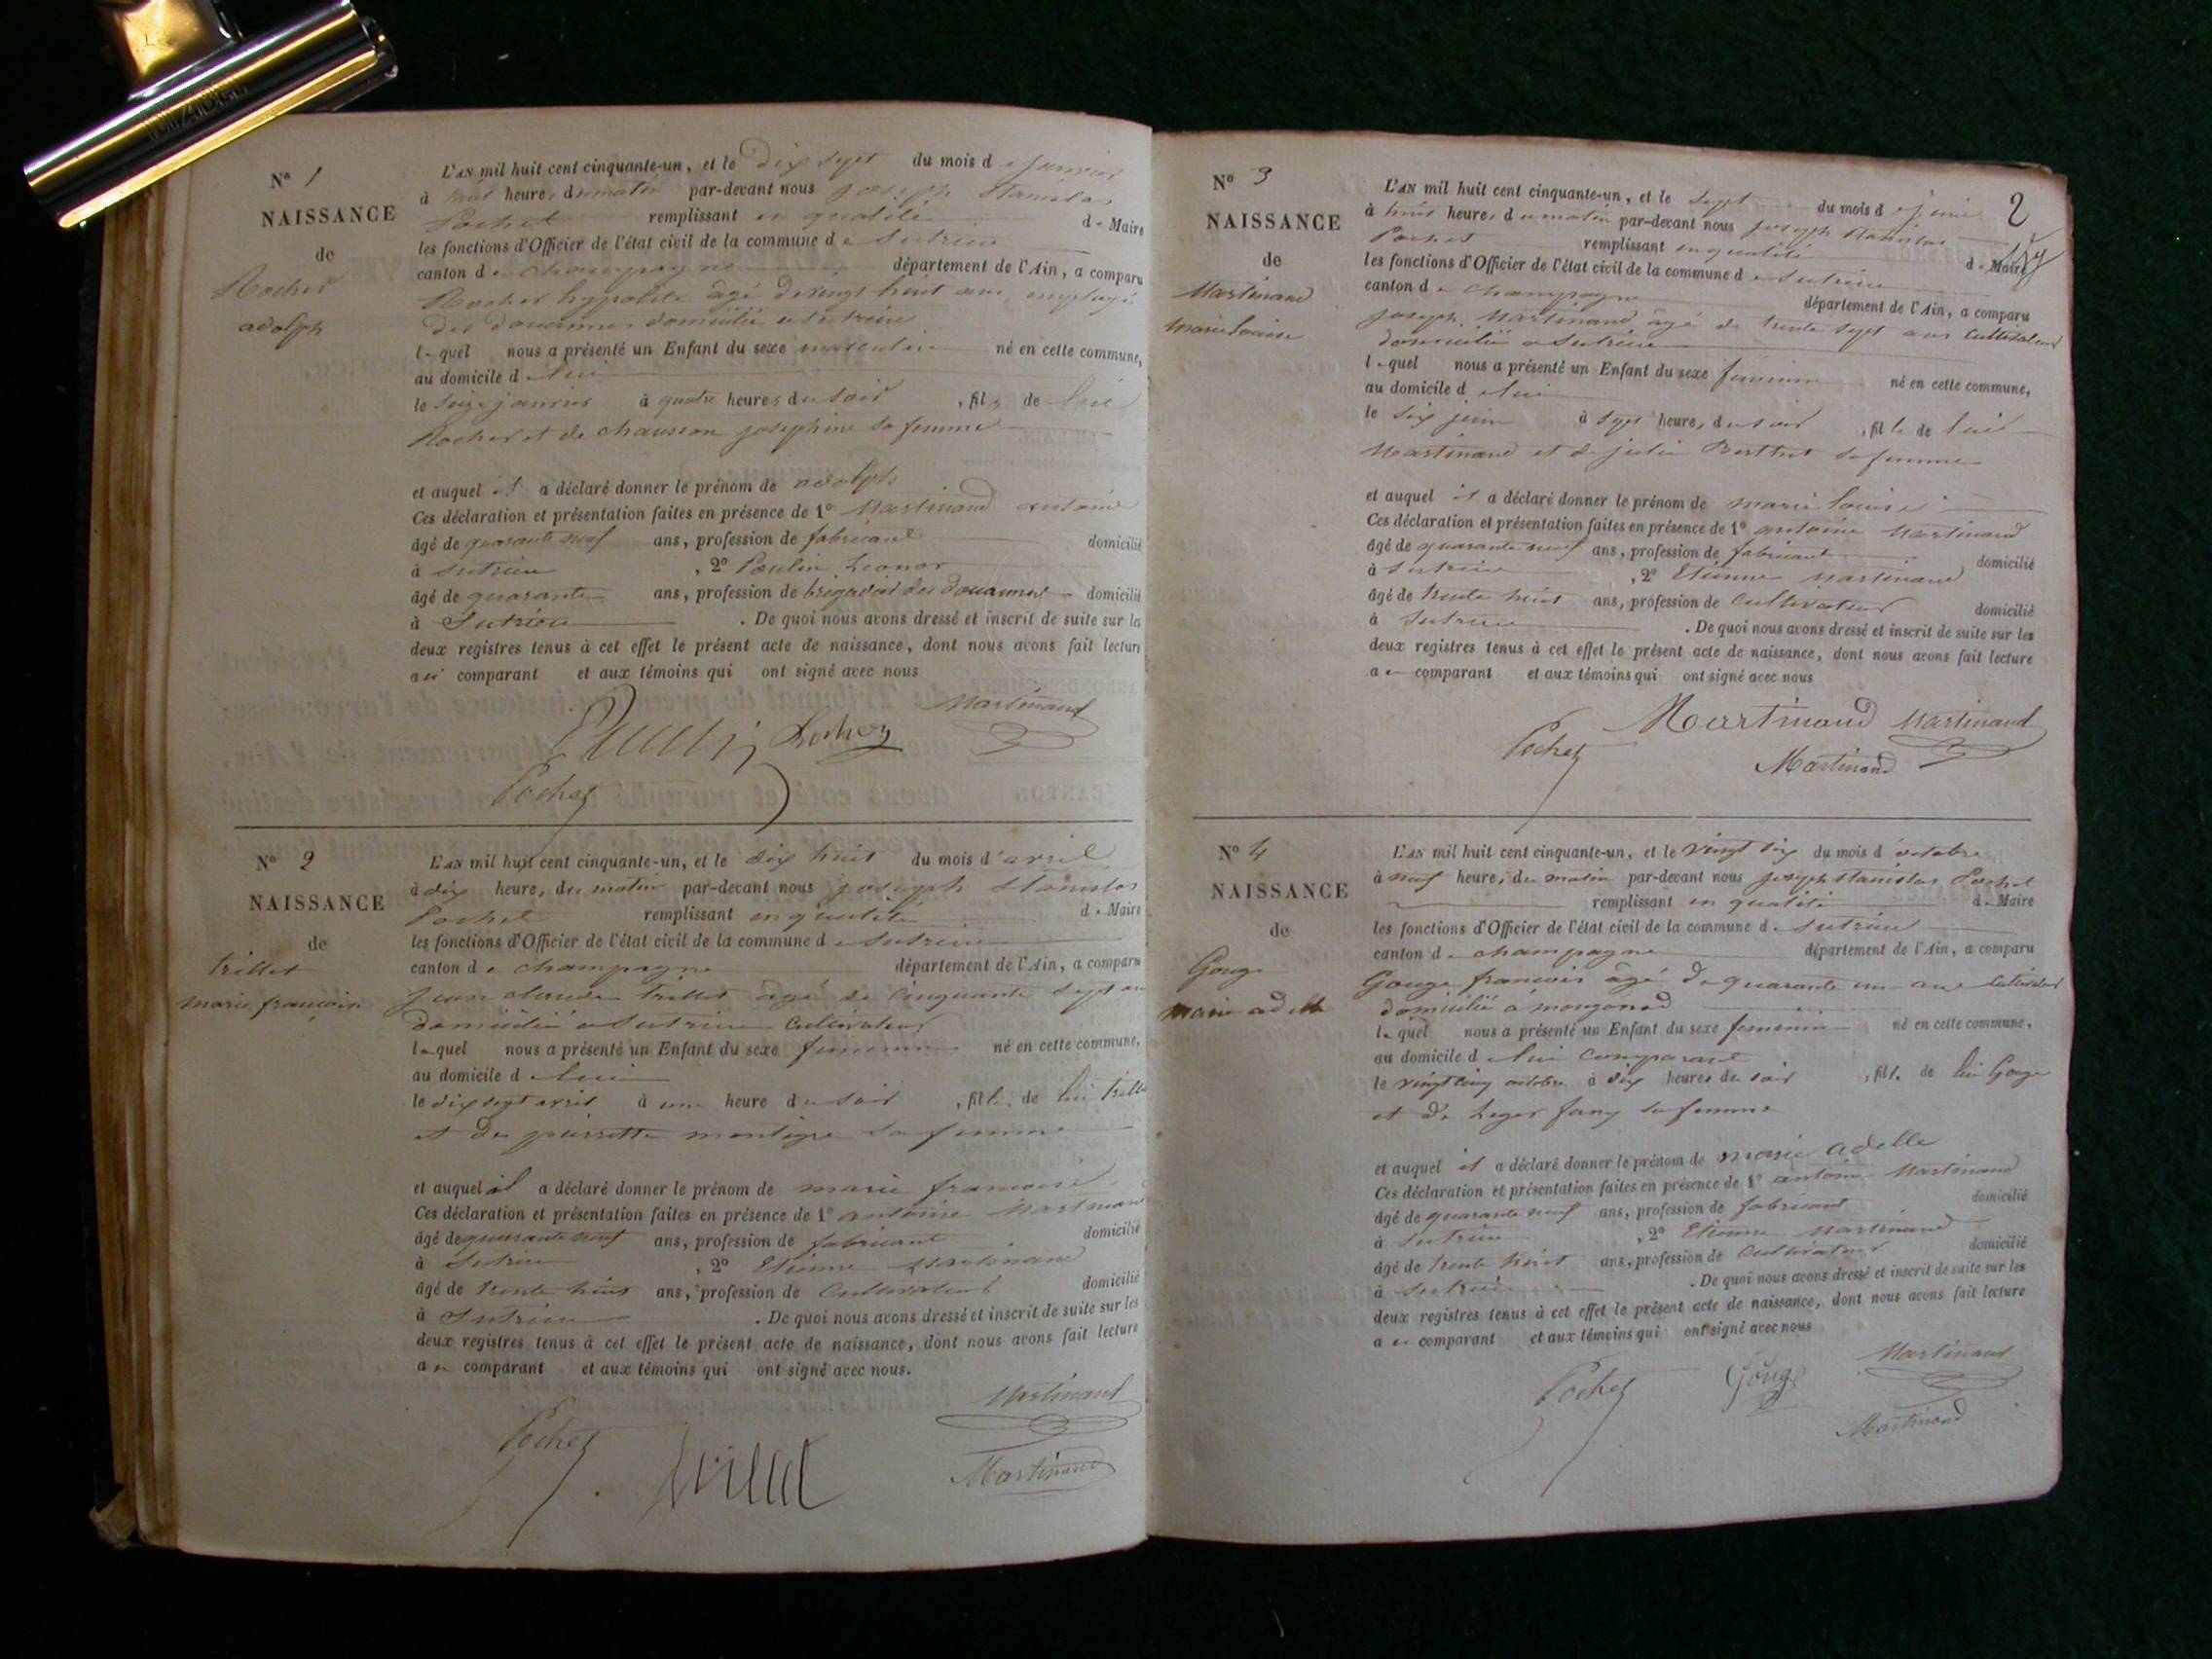 N° 1
NAISSANCE
de
Rocher
adolph
L'AN mil huit cent cinquante-un, et le Dix sept du mois de janvier
à huit heures du matin par-devant nous joseph Stanislas
Pochet remplissant en qualité de Maire
les fonctions d'Officier de l'état civil de la commune de Sutrieu
canton de champagne département de l'Ain, a comparu
Rocher hypolite âgé de vingt huit ans, employé
des douannes domicilié a Sutrieu
lequel nous a présenté un Enfant du sexe masculin né en cette commune,
au domicile de lui
le seize janvier à quatre heures du soir, fils de lui
Rocher et de chausson josephine sa femme
et auquel il a déclaré donner le prénom de adolph
Ces déclaration et présentation faites en présence de 1° Martinand antoine
âgé de quarante neuf ans, profession de fabricant domicilié
à Sutrieu, 2° Poulin Leonor
âgé de quarante ans, profession de brigadier des douannes domicilié
à Sutrieu. De quoi nous avons dressé et inscrit de suite sur les
deux registres tenus à cet effet le présent acte de naissance, dont nous avons fait lecture
au comparant et aux témoins qui ont signé avec nous
Martinand
Rocher
Pochet
N° 2
NAISSANCE
de
trillet
marie francoise
L'AN mil huit cent cinquante-un, et le dix huit du mois d'avril
à dix heures du matin par-devant nous joseph Stanislas
Pochet remplissant en qualité de Maire
les fonctions d'Officier de l'état civil de la commune de Sutrieu
canton de champagne département de l'Ain, a comparu
jean claude trillet agé de cinquante sept ans
domicilié a Sutrieu cultivateur
lequel nous a présenté un Enfant du sexe feminin né en cette commune,
au domicile de lui
le dix sept avril à une heure du soir, fille de lui trillet
et de pierrette sa femme
et auquel il a déclaré donner le prénom de marie francoise
Ces déclaration et présentation faites en présence de 1° antoine Martinand
âgé de quarante neuf ans, profession de fabricant domicilié
à Sutrieu, 2° Etienne Martinand
âgé de trente huit ans, profession de Cultivateur domicilié
à Sutrieu. De quoi nous avons dressé et inscrit de suite sur les
deux registres tenus à cet effet le présent acte de naissance, dont nous avons fait lecture
au comparant et aux témoins qui ont signé avec nous.
Martinand
Pochet
Martinand
2
N° 3
NAISSANCE
de
Martinand
marie louise
L'AN mil huit cent cinquante-un, et le Sept du mois de juin
à huit heures du matin par-devant nous joseph Stanislas
Pochet remplissant en qualité de Maire
les fonctions d'Officier de l'état civil de la commune de Sutrieu
canton de Champagne département de l'Ain, a comparu
joseph Martinand âgé de trente sept ans Cultivateur
domicilié a Sutrieu
lequel nous a présenté un Enfant du sexe feminin né en cette commune,
au domicile de lui
le Six juin à Sept heures du soir, fille de lui
Martinand et de julie Berthet sa femme
et auquel il a déclaré donner le prénom de marie louise
Ces déclaration et présentation faites en présence de 1° antoine Martinand
âgé de quarante neuf ans, profession de fabricant domicilié
à Sutrieu, 2° Etienne Martinand
âgé de trente huit ans, profession de Cultivateur domicilié
à Sutrieu. De quoi nous avons dressé et inscrit de suite sur les
deux registres tenus à cet effet le présent acte de naissance, dont nous avons fait lecture
au comparant et aux témoins qui ont signé avec nous
Martinand Martinand
Pochet
Martinand
N° 4
NAISSANCE
de
Gouge
marie adelle
L'AN mil huit cent cinquante-un, et le vingt six du mois d'octobre
à neuf heures du matin par-devant nous joseph Stanislas Pochet
remplissant en qualité de Maire
les fonctions d'Officier de l'état civil de la commune de Sutrieu
canton de champagne département de l'Ain, a comparu
Gouge francois âgé de quarante un ans Cultivateur
domicilié a mongonod
lequel nous a présenté un Enfant du sexe feminin né en cette commune,
au domicile de lui comparant
le vingt cinq octobre à dix heures du soir, fille de lui Gouge
et de Leger fany sa femme
et auquel il a déclaré donner le prénom de marie adelle
Ces déclaration et présentation faites en présence de 1° antoine Martinand
âgé de quarante neuf ans, profession de fabricant domicilié
à Sutrieu, 2° Etienne Martinand
âgé de trente huit ans, profession de Cultivateur domicilié
à Sutrieu. De quoi nous avons dressé et inscrit de suite sur les
deux registres tenus à cet effet le présent acte de naissance, dont nous avons fait lecture
au comparant et aux témoins qui ont signé avec nous
Martinand
Pochet Gouge
Martinand